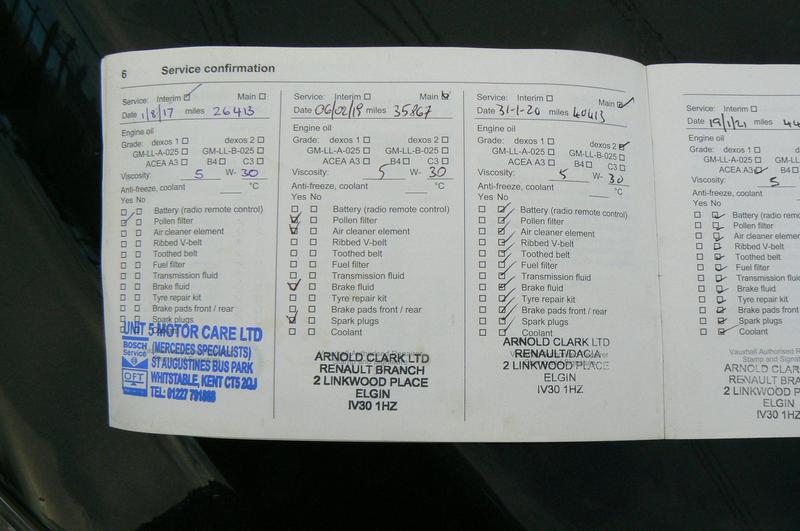 6 Service confirmation
Service: Interim Main
Date 1/8/17 miles 26413
Engine oil
Grade: dexos 1 dexos 2
GM-LL-A-025 GM-LL-B-025
ACEA A3 B4 C3
Viscosity: 5 W- 30
Anti-freeze, coolant °C
Yes No
Battery (radio remote control)
Pollen filter
Air cleaner element
Ribbed V-belt
Toothed belt
Fuel filter
Transmission fluid
Brake fluid
Tyre repair kit
Brake pads front / rear
Spark plugs
UNIT 5 MOTOR CARE LTD
BOSCH Service
(MERCEDES SPECIALISTS)
OFT
ST AUGUSTINES BUS PARK
WHITSTABLE, KENT CT5 2QJ
TEL: 01227 791888
Service: Interim Main
Date 06/02/19 miles 35867
Engine oil
Grade: dexos 1 dexos 2
GM-LL-A-025 GM-LL-B-025
ACEA A3 B4 C3
Viscosity: 5 W- 30
Anti-freeze, coolant °C
Yes No
Battery (radio remote control)
Pollen filter
Air cleaner element
Ribbed V-belt
Toothed belt
Fuel filter
Transmission fluid
Brake fluid
Tyre repair kit
Brake pads front / rear
Spark plugs
Coolant
ARNOLD CLARK LTD
RENAULT BRANCH
2 LINKWOOD PLACE
ELGIN
IV30 1HZ
Service: Interim Main
Date 31-1-20 miles 40413
Engine oil
Grade: dexos 1 dexos 2
GM-LL-A-025 GM-LL-B-025
ACEA A3 B4 C3
Viscosity: 5 W- 30
Anti-freeze, coolant °C
Yes No
Battery (radio remote control)
Pollen filter
Air cleaner element
Ribbed V-belt
Toothed belt
Fuel filter
Transmission fluid
Brake fluid
Tyre repair kit
Brake pads front / rear
Spark plugs
Coolant
ARNOLD CLARK LTD
RENAULT/DACIA
2 LINKWOOD PLACE
ELGIN
IV30 1HZ
Service: Interim
Date 19/1/21 miles 44
Engine oil
Grade: dexos 1
GM-LL-A-025 GM
ACEA A3
Viscosity: 5
Anti-freeze, coolant
Yes No
Battery (radio remote
Pollen filter
Air cleaner element
Ribbed V-belt
Toothed belt
Fuel filter
Transmission fluid
Brake fluid
Tyre repair kit
Brake pads front / rear
Spark plugs
Coolant
Vauxhall Authorised R
Stamp and Signat
ARNOLD CLAR
RENAULT BRAN
2 LINKWOOD P
ELGIN
IV30 1HZ